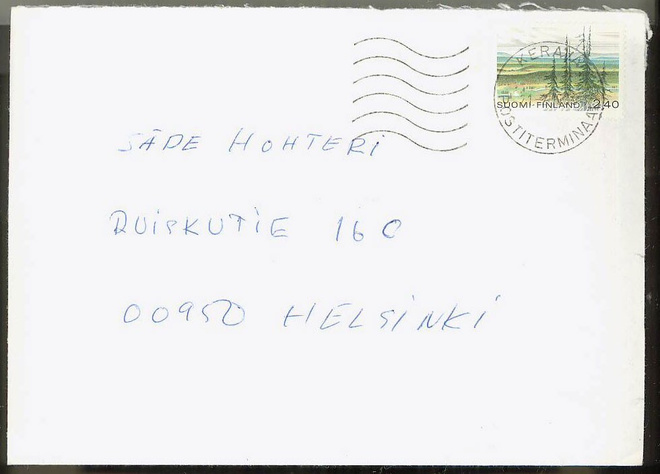 KERAVA
SUOMI-FINLAND 2.40
POSTITERMINAALI
SÄDE HOHTERI
RUISKUTIE 16 C
00950 HELSINKI